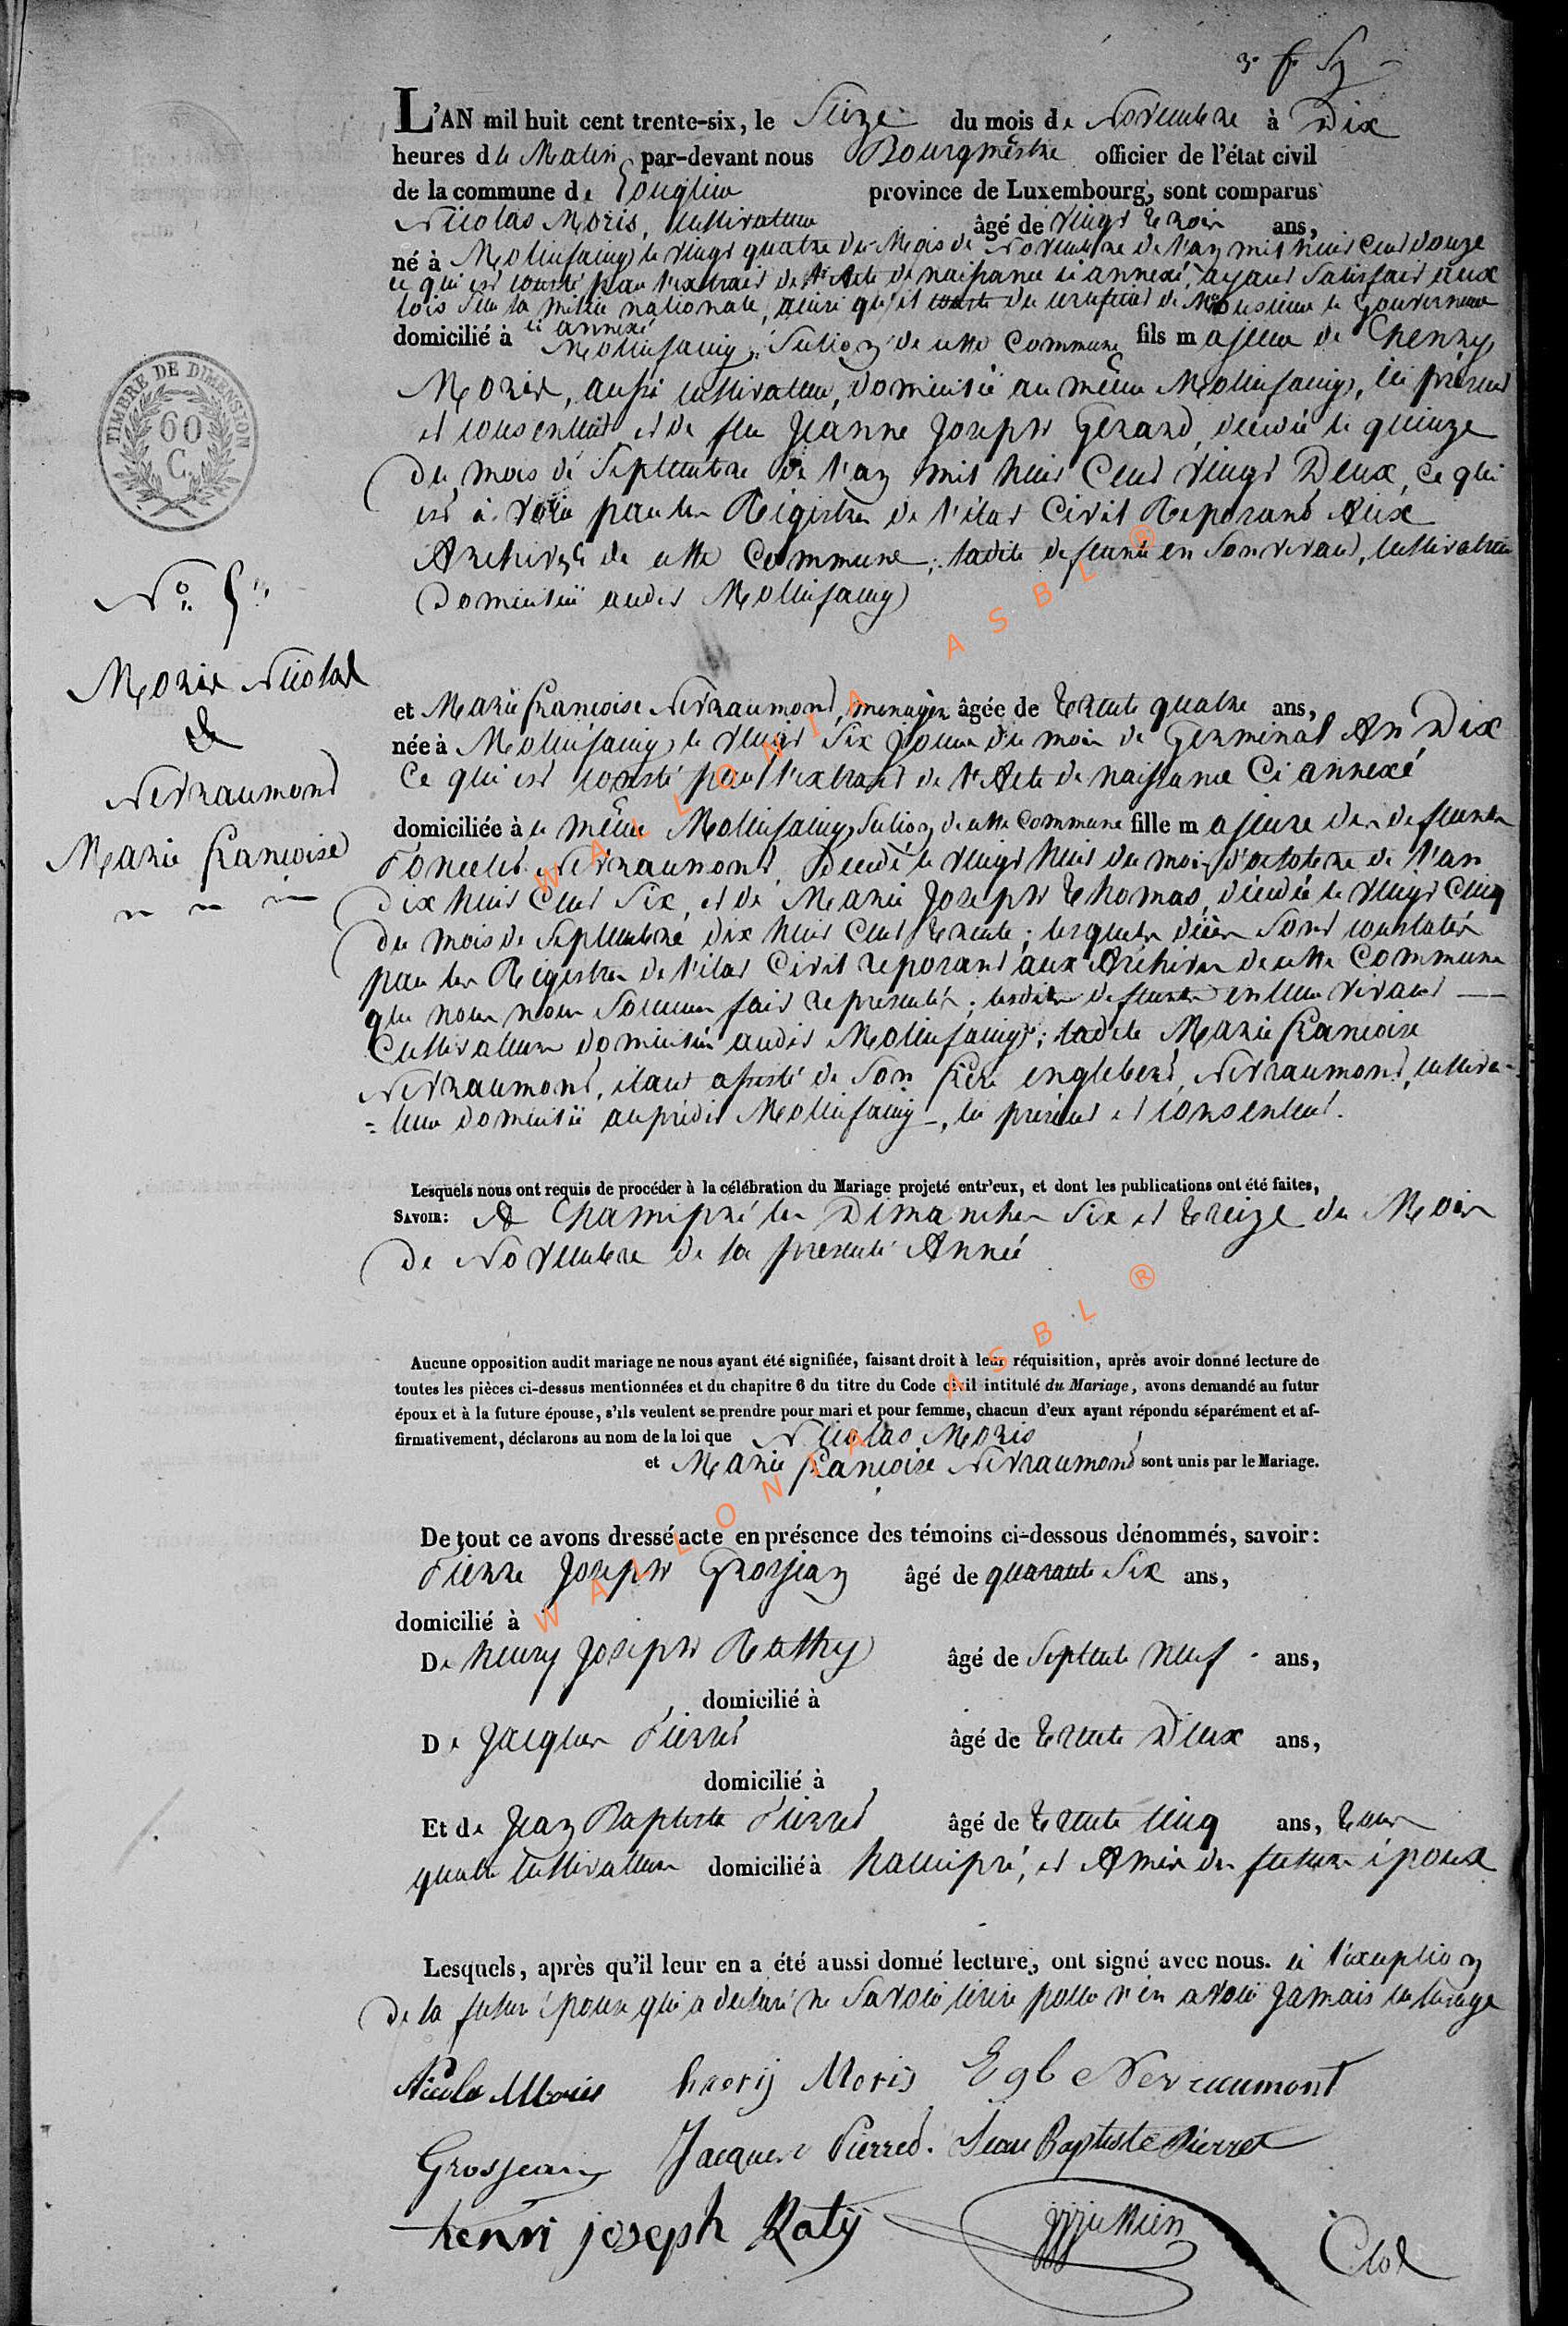 3. f. 57
L'AN mil huit cent trente-six, le Seize du mois de Novembre à Dix
heures du Matin par-devant nous Bourgmestre officier de l'état civil
de la commune de Longlier province de Luxembourg, sont comparus
Nicolas Moris, Cultivateur âgé de vingt trois ans,
né à Molinfaing le vingt quatre du Mois de Novembre de l'an mil huit cent douze
ce qui est consté par l'extrait de l'Acte de naissance ci annexé, ayant satisfait aux
lois sur la milice nationale, ainsi qu'il conste du certificat de Monsieur le Gouverneur
ci annexé
domicilié à Molinfaing, Section de cette Commune fils majeur de Henry
Moris, aussi cultivateur, domicilié au même Molinfaing, ici présent
et consentant et de feu Jeanne Joseph Gerard, décédée le quinze
du mois de Septembre de l'an mil huit Cent vingt Deux, ce qui
est à voir par les Régistres de l'état Civil Reposant Aux
Archives de cette Commune; ladite defunte en son vivant, cultivatrice
Domiciliée audit Molinfaing
TIMBRE DE DIMENSION
60
C.
No. 5
Moris Nicolas
&
Nevraumond
Marie françoise
et Marie françoise Nevraumond, menagère âgée de trente quatre ans,
née à Molinfaing le vingt Six Jour du mois de Germinal An Dix
Ce qui est consté par l'extrait de l'Acte de naissance Ci annexé
domiciliée à le même Molinfaing, Section de cette Commune fille majeure des defunts
Poncelet Nevraumont, Décédé le vingt huit du mois d'octobre de l'an
Dix huit Cent Six, et de Marie Joseph Thomas, décédée le vingt Cinq
du mois de Septembre dix huit Cent trente; lesquels décès sont constatés
par les Régistres de l'état Civil reposant aux Archives de cette Commune
que nous nous sommes fait representés; lesdits defunts en leur vivant
Cultivateurs domiciliés audit Molinfaing; ladite Marie françoise
Nevraumond, étant assisté de Son frère englebert Nevraumond, cultiva-
=teur domicilié au prédit Molinfaing, ici présent et consentant.
Lesquels nous ont requis de procéder à la célébration du Mariage projeté entr'eux, et dont les publications ont été faites,
SAVOIR: A hamipré les Dimanches Six et treize du Mois
de Novembre de la presente Année
Aucune opposition audit mariage ne nous ayant été signifiée, faisant droit à leur réquisition, après avoir donné lecture de
toutes les pièces ci-dessus mentionnées et du chapitre 6 du titre du Code civil intitulé du Mariage, avons demandé au futur
époux et à la future épouse, s'ils veulent se prendre pour mari et pour femme, chacun d'eux ayant répondu séparément et af-
firmativement, déclarons au nom de la loi que Nicolas Moris
et Marie françoise Nevraumond sont unis par le Mariage.
De tout ce avons dressé acte en présence des témoins ci-dessous dénommés, savoir:
Pierre Joseph Grosjean âgé de quarante Six ans,
domicilié à
De henry Joseph Rathy âgé de Septente neuf ans,
domicilié à
De Jacques Pierret âgé de trente Deux ans,
domicilié à
Et de Jean Baptiste Pierret âgé de trente cinq ans, tous
quatre Cultivateurs domicilié à hamipré, et Amis des futurs époux
Lesquels, après qu'il leur en a été aussi donné lecture, ont signé avec nous. à l'exception
de la future épouse qui a déclaré ne Savoir écrire pour n'en avoir Jamais eu l'usage
Nicola Moris henrij Moris Egb Nevraumont
Grosjean Jacques Pierred. Jean Baptiste Pierret
henri joseph Raty Clos
WALLONIA ASBL ®
WALLONIA ASBL ®